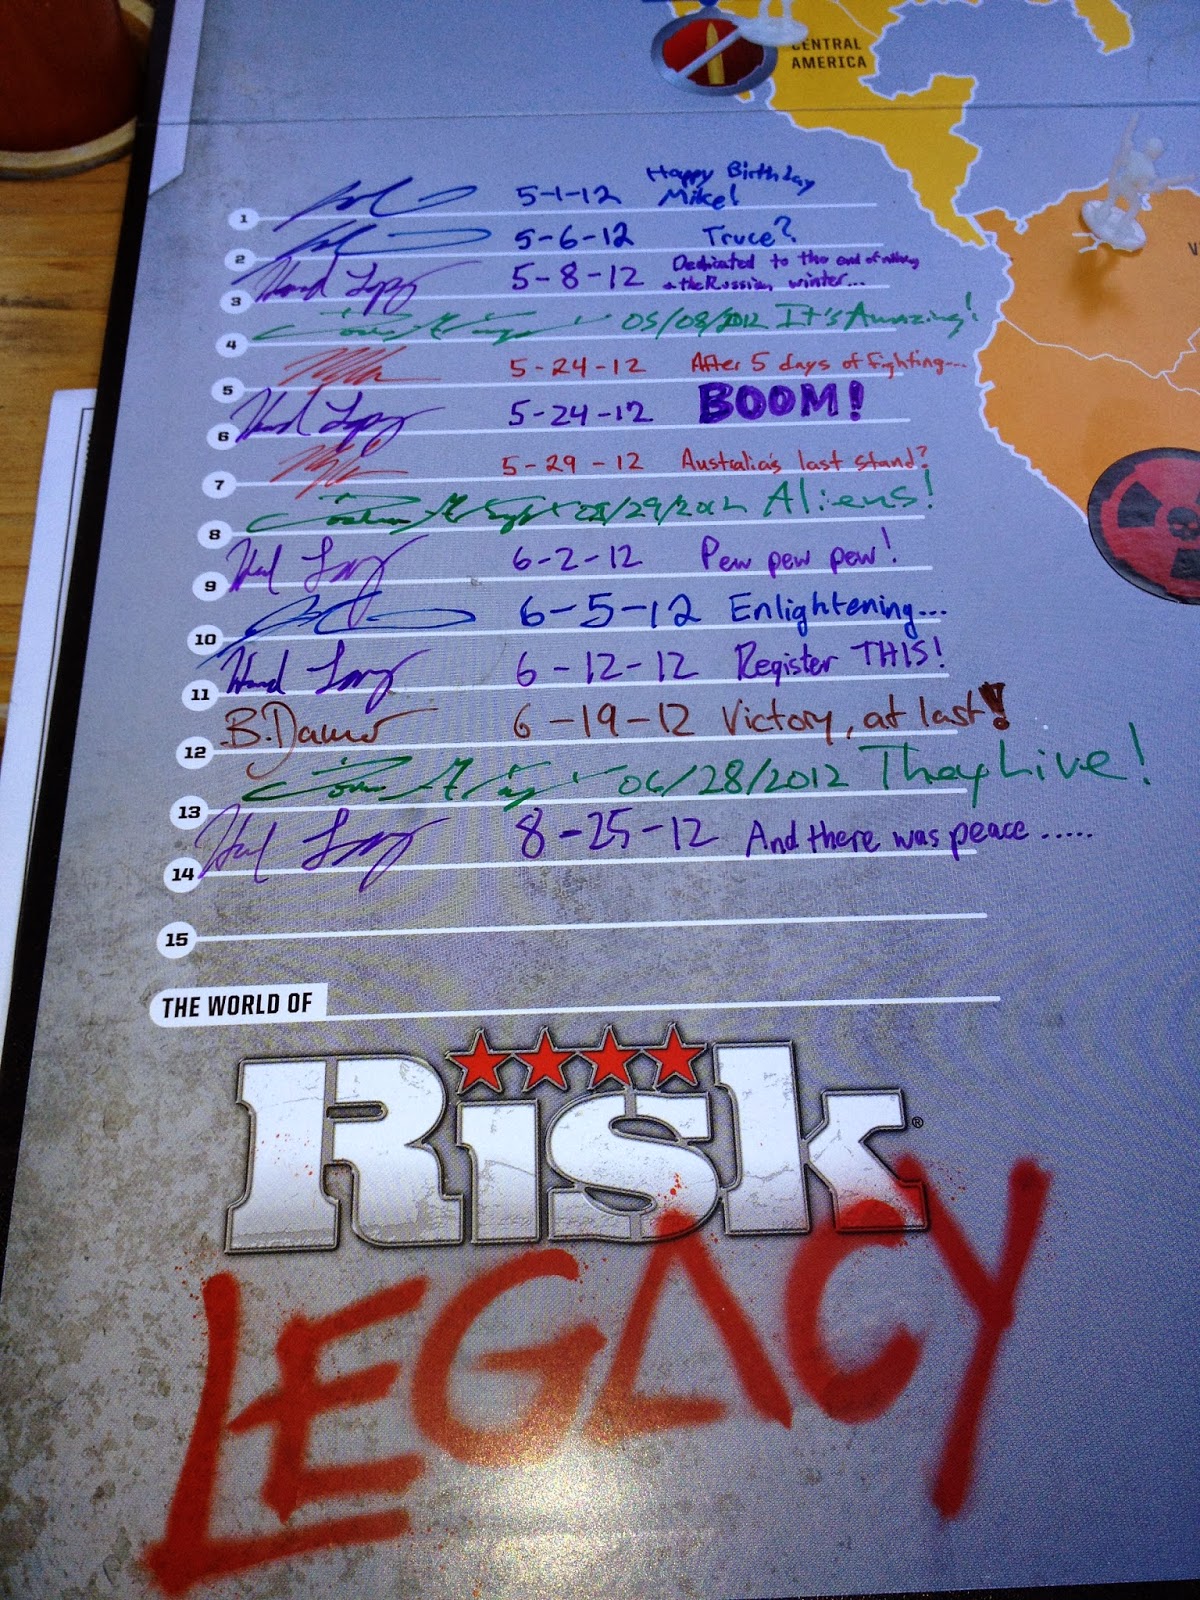 CENTRAL
AMERICA
V
Happy Birthday
1 5-1-12 Mike!
2 5-6-12 Truce?
Dedicated to the end of
3 5-8-12 the Russian winter...
4 05/08/2012 It's Amazing!
5 5-24-12 After 5 days of fighting...
6 5-24-12 BOOM!
7 5-29-12 Australia's last stand?
8 /29/2012 Aliens!
9 6-2-12 Pew pew pew!
10 6-5-12 Enlightening...
11 6-12-12 Register THIS!
12 B. 6-19-12 Victory, at last!
13 06/28/2012 They Live!
14 8-25-12 And there was peace .....
15
THE WORLD OF
RISK®
LEGACY